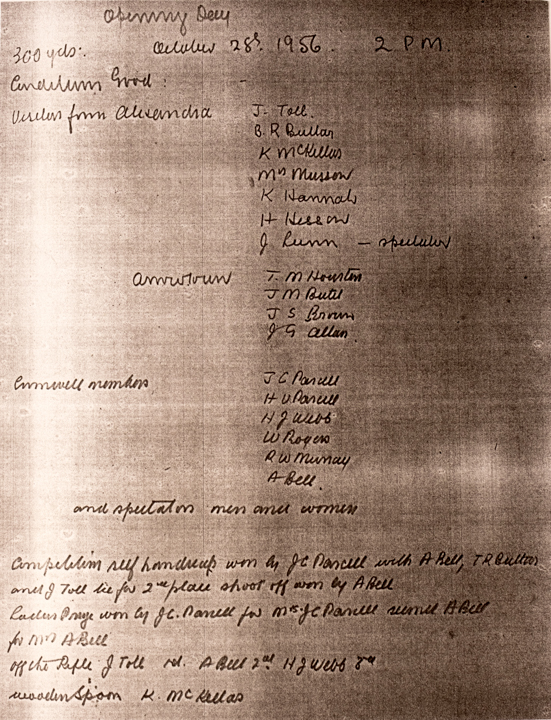 Opening Day
300 yds: October 28th 1956. 2 PM.
Conditions Good:
Visitors from Alexandra J. Toll.
B. R Buttar
K McKellar
Mrs Musson
K Hannah
H Hesson
J Lunn — spectator
Arrowtown T. M Houston
J M Butel
J S Brown
J G Allan
Cromwell members J C Parcell
H U Parcell
H J Webb
W Rogers
R W Murray
A Bell.
and spectators men and women
Competition self handicap won by JC Parcell with A Bell, Buttar
and J Toll tie for 2nd place shoot off won by A Bell
Ladies Prize won by J.C. Parcell for Mrs JC Parcell A Bell
for Mrs A Bell
off the Rifle J Toll A Bell 2nd H J Webb 3rd
wooden Spoon K. McKellar